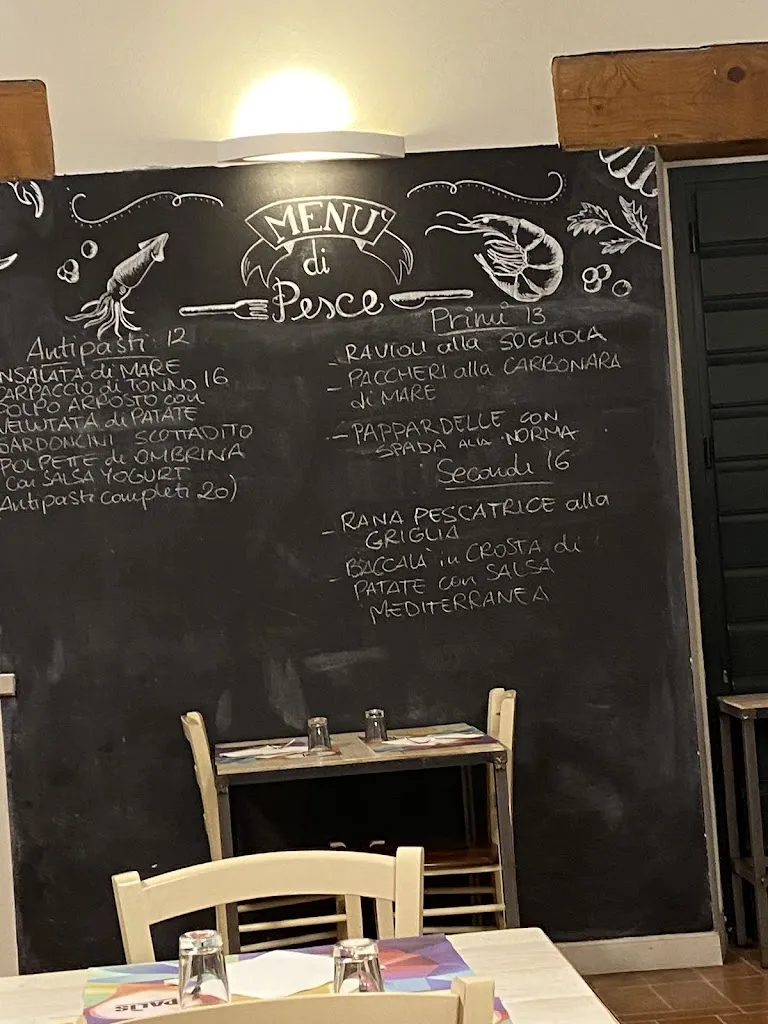 MENU'
di
Pesce
Antipasti 12
NSALATA di MARE
ARPACCIO di TONNO 16
POLPO ARROSTO con
VELLUTATA di PATATE
CARDONCINI SCOTTADITO
POLPETE di OMBRINA
con SALSA YOGURT
Antipasti completi 20)
Primi 13
- RAVIOLI alla SOGLIOLA
- PACCHERI alla CARBONARA
di MARE
- PAPPARDELLE con
SPADA alla NORMA
Secondi 16
- RANA PESCATRICE alla
GRIGLIA
- BACCALÀ in CROSTA di
PATATE con SALSA
MEDITERRANEA
PALÙS